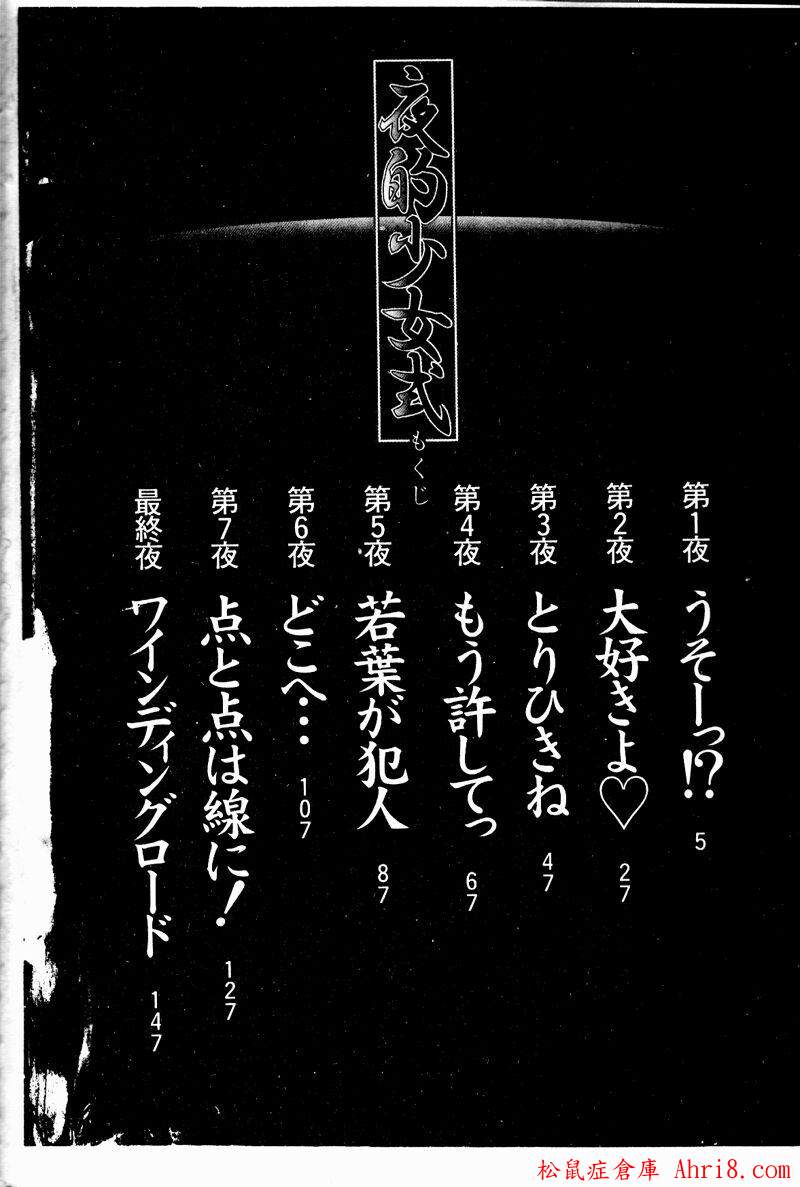 夜的少女式
もくじ
第1夜 うそーっ!? 5
第2夜 大好きよ♡ 27
第3夜 とりひきね 47
第4夜 もう許してっ 67
第5夜 若葉が犯人 87
第6夜 どこへ… 107
第7夜 点と点は線に! 127
最終夜 ワインディングロード 147
松鼠症倉庫 Ahri8.com